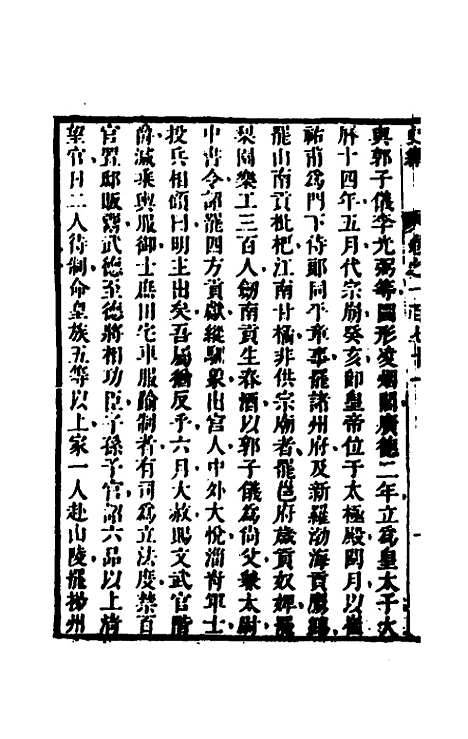 史緯　卷之一百七十一
與郭子儀李光弼等圖形凌烟閣廣德二年立爲皇太子大
曆十四年五月代宗崩癸亥卽皇帝位于太極殿閏月以崔
祐甫爲門下侍郞同平章事罷諸州府及新羅渤海貢鷹鷂
罷山南貢枇杷江南甘橘非供宗廟者罷邕府歲貢奴婢罷
梨園樂工三百人劒南貢生春酒以郭子儀爲尙父兼太尉
中書令詔罷四方貢獻縱馴象出宮人中外大悅淄靑軍士
投兵相顧曰明主出矣吾屬猶反乎六月大赦賜文武官階
爵減乘輿服御士庶田宅車服踰制者有司爲立法度禁百
官置邸販鬻武德至德將相功臣子孫予官詔六品以上淸
望官日二人待制命皇族五等以上家一人赴山陵罷揚州